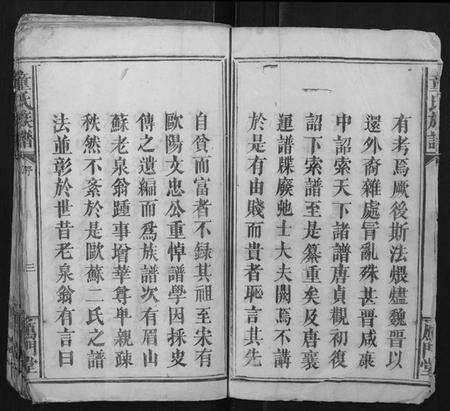 童氏族譜
有考焉厥後斯法煨燼魏晋以
還外裔雜處冒亂殊甚晋咸康
中詔索天下諸譜唐貞觀初復
詔下索譜至是纂重矣及唐襄
運譜牒廢弛士大夫闕焉不講
於是有由賤而貴者恥言其先
自貧而富者不録其祖至宋有
歐陽文忠公重悼譜學因採史
傳之遺編而爲族譜次有眉山
蘇老泉翁踵事增華尊卑親疎
秩然不紊於是歐蘇二氏之譜
法並彰於世昔老泉翁有言曰
童氏族譜
序
三
雁門堂